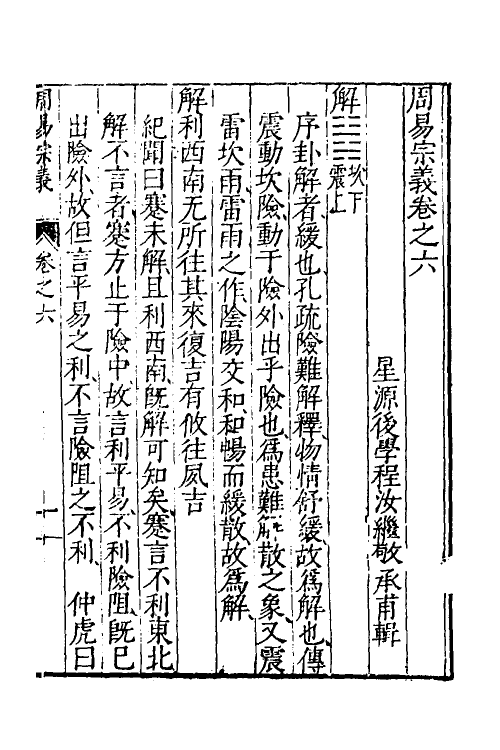 周易宗義卷之六
星源後學程汝繼敬承甫輯
解
坎下
震上
序卦解者緩也孔疏險難解釋物情舒緩故爲解也傳
震動坎險動于險外出乎險也爲患難解散之象又震
雷坎雨雷雨之作陰陽交和和暢而緩散故爲解
解利西南无所往其來復吉有攸往夙吉
紀聞曰蹇未解且利西南旣解可知矣蹇言不利東北
解不言者蹇方止于險中故言利平易不利險阻旣已
出險外故但言平易之利不言險阻之不利 仲虎曰
周易宗義
卷之六
一